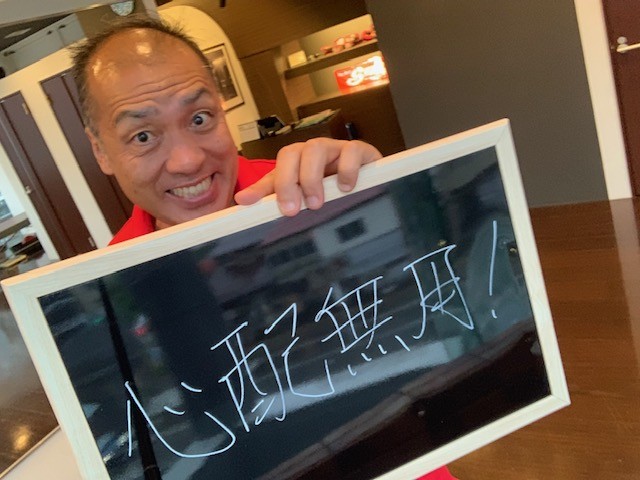 心配無用!